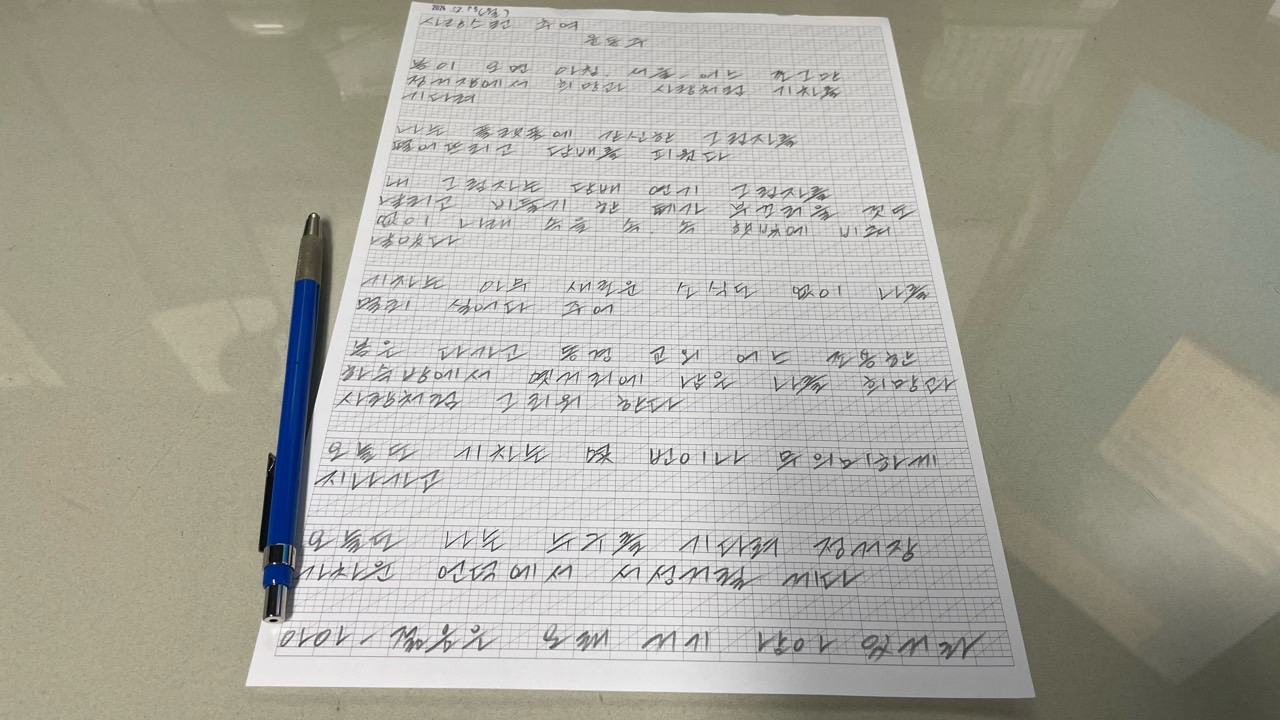 사랑스런 추억
윤동주
봄이 오던 아침. 서울. 어느 쪼그만
정거장에서 희망과 사랑처럼 기차를
기다려
나는 플랫폼에 간신한 그림자를
떨어뜨리고 담배를 피웠다
내 그림자는 담배 연기 그림자를
날리고 비둘기 한 떼가 부끄러울 것도
없이 나래 속을 속. 속 햇빛에 비춰
날았다
기차는 아무 새로운 소식도 없이 나를
멀리 실어다 주어
봄은 다가고 동경 교외 어느 조용한
하숙방에서 옛거리에 남은 나를 희망과
사랑처럼 그리워 한다
오늘도 기차는 몇 번이나 무의미하게
지나가고
오늘도 나는 누구를 기다려 정거장
가차운 언덕에서 서성거릴 게다
아아 - 젊음은 오래 거기 남아 있거라